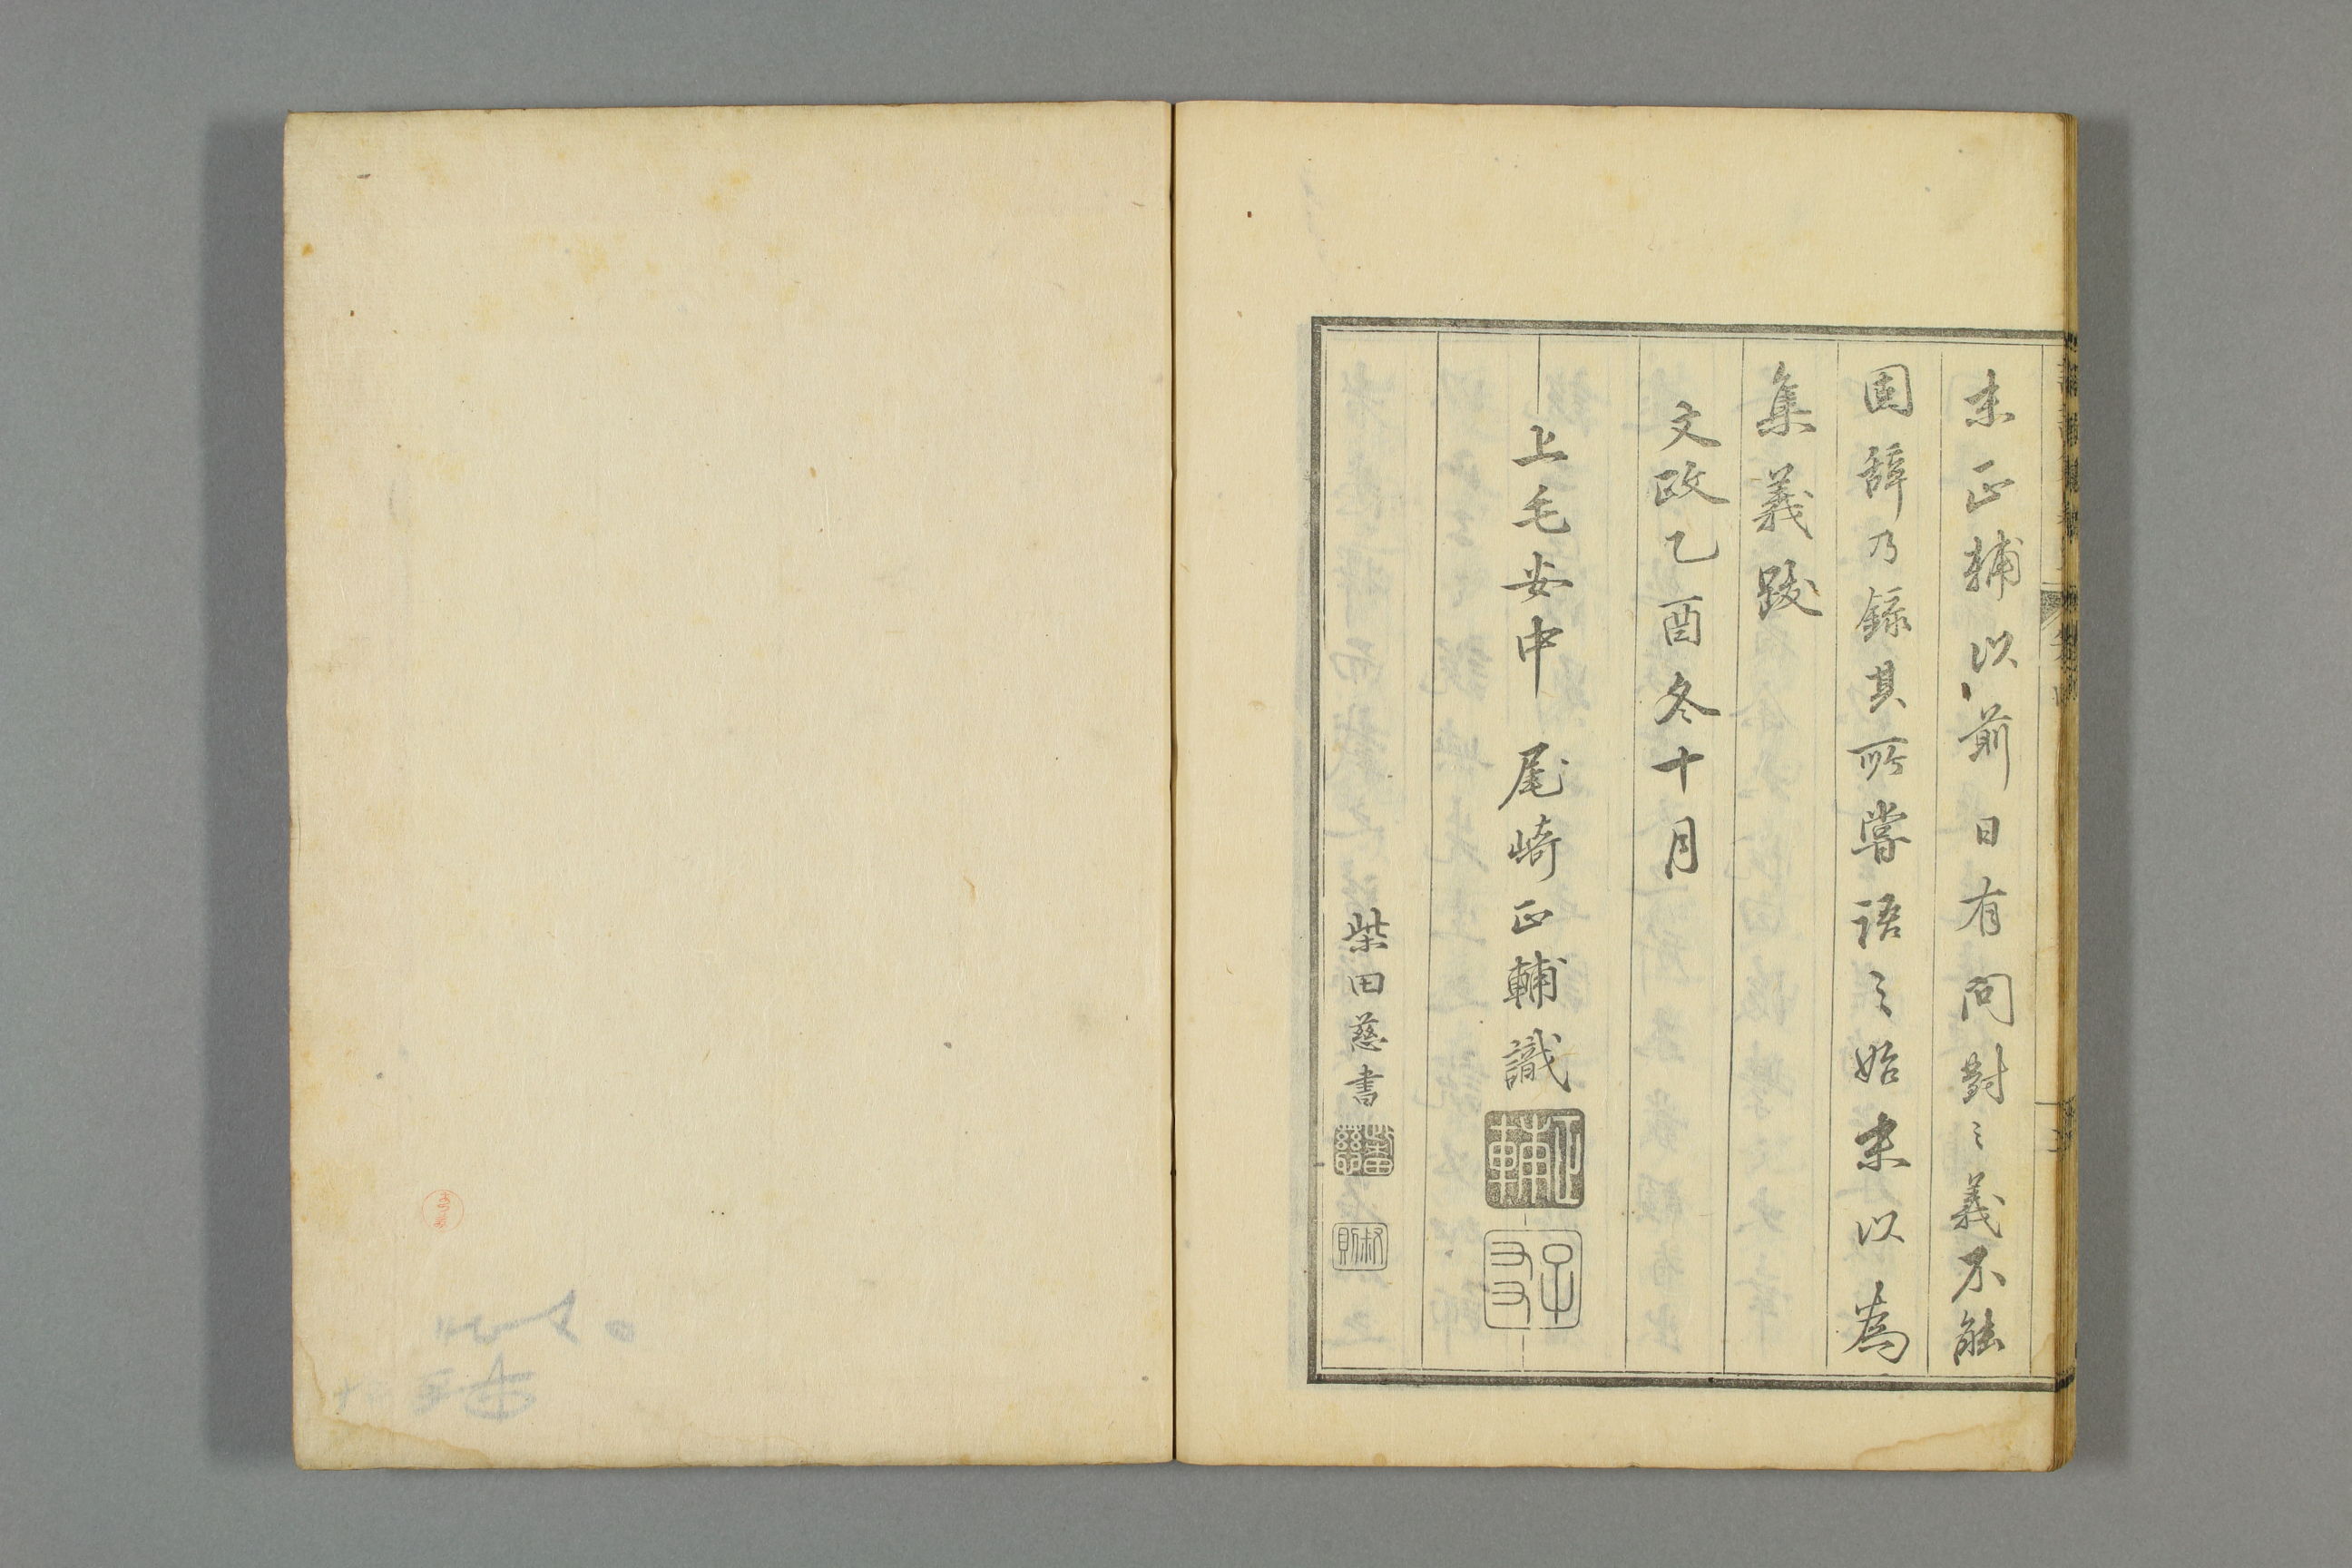 末正輔以前日有問對之義不能
固辞乃錄其所嘗語之始末以為
集義跋
文政乙酉冬十月
上毛安中 尾崎正輔識
正輔
子友
柴田慈書